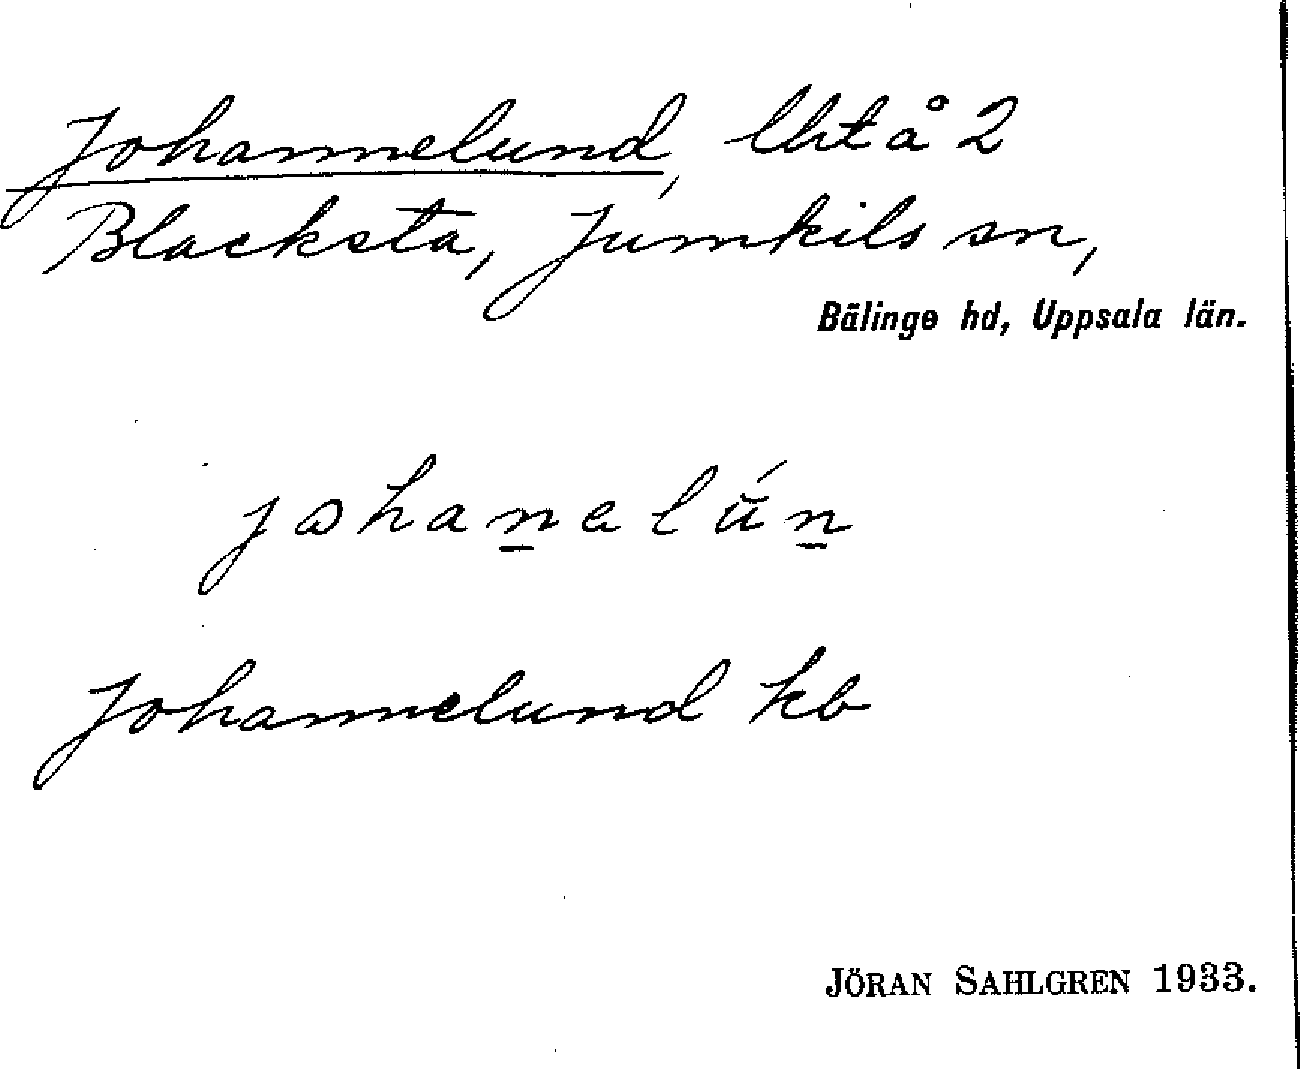 Johannelund, lht å 2
Blacksta, Jumkils sn,
Bälinge hd, Uppsala län.
johanelún
Johannelund kb
JÖRAN SAHLGREN 1933.